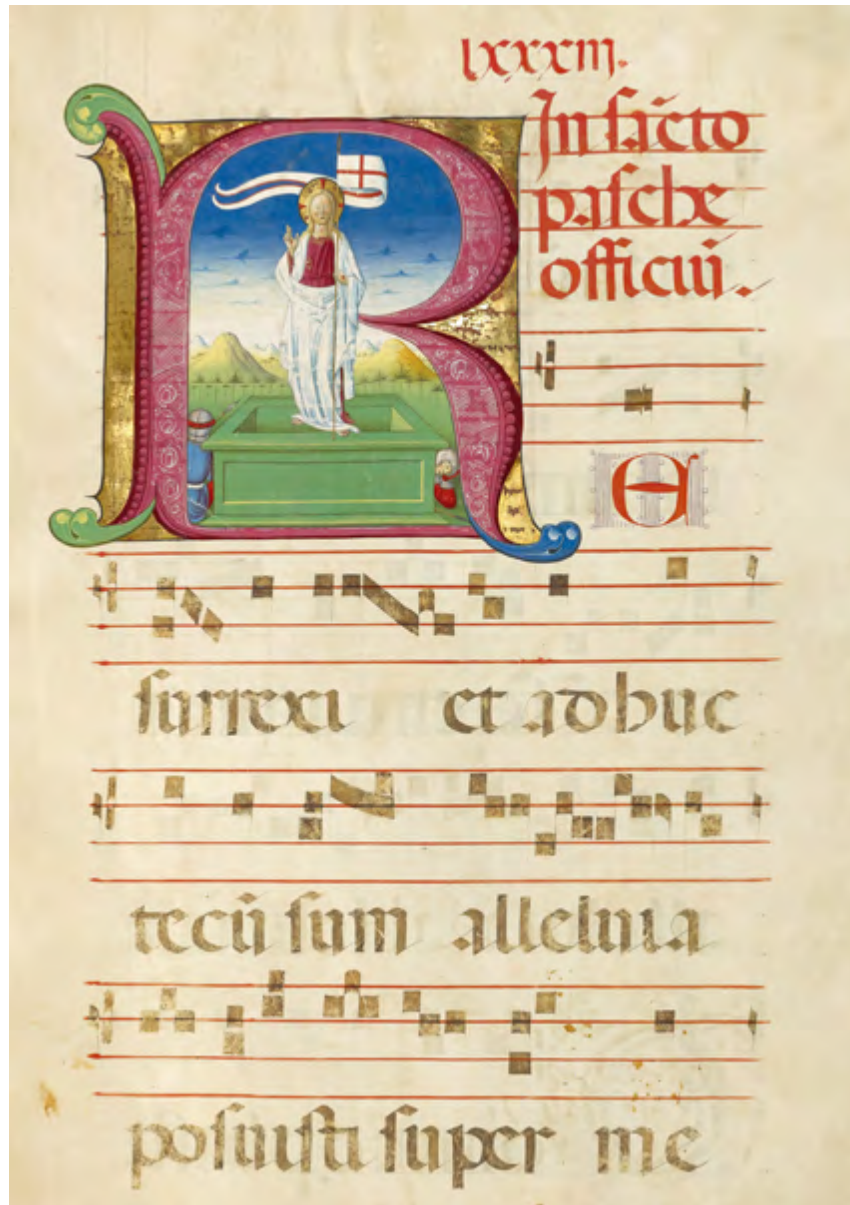 lxxxiij.
In sācto
pasche
officiū.
RE
surrexi et adhuc
tecū sum alleluia
posuisti super me